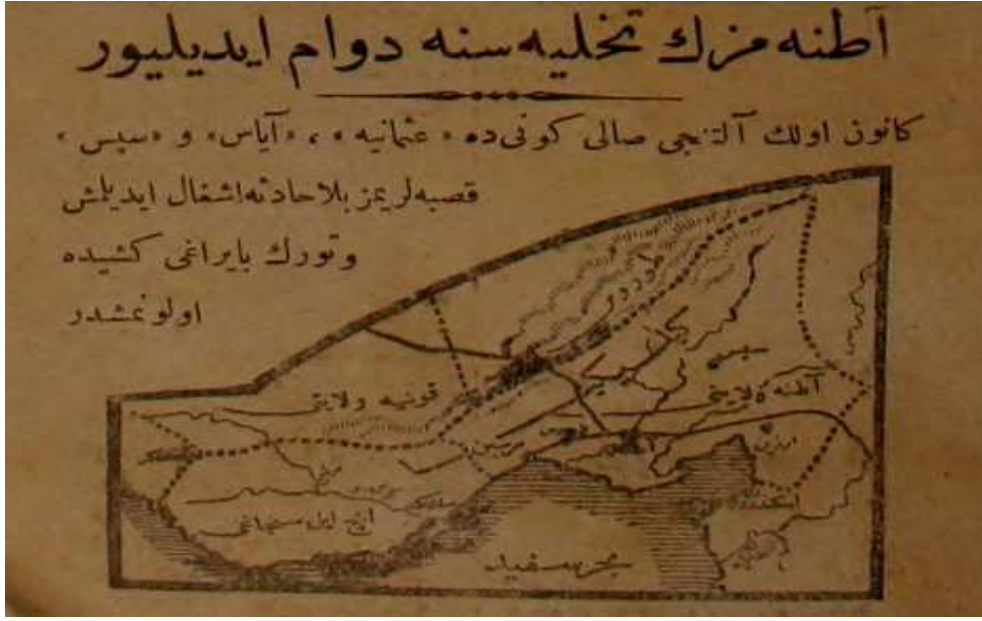 آطنه مزك تخليه سنه دوام ايديليور
كانون اولك آلتنجى صالى كونى ده «عثمانيه»، «آياس» و «سيس»
قصبه لريمز بلا حادثه اشغال ايديلمش
و تورك بايراغى كشيده
اولونمشدر
طوروس
سيس
آطنه ولايتى
قونيه ولايتى
مرسين
ارزين
اسكندرون
ايچ ايل سنجاغى
بحر سفيد